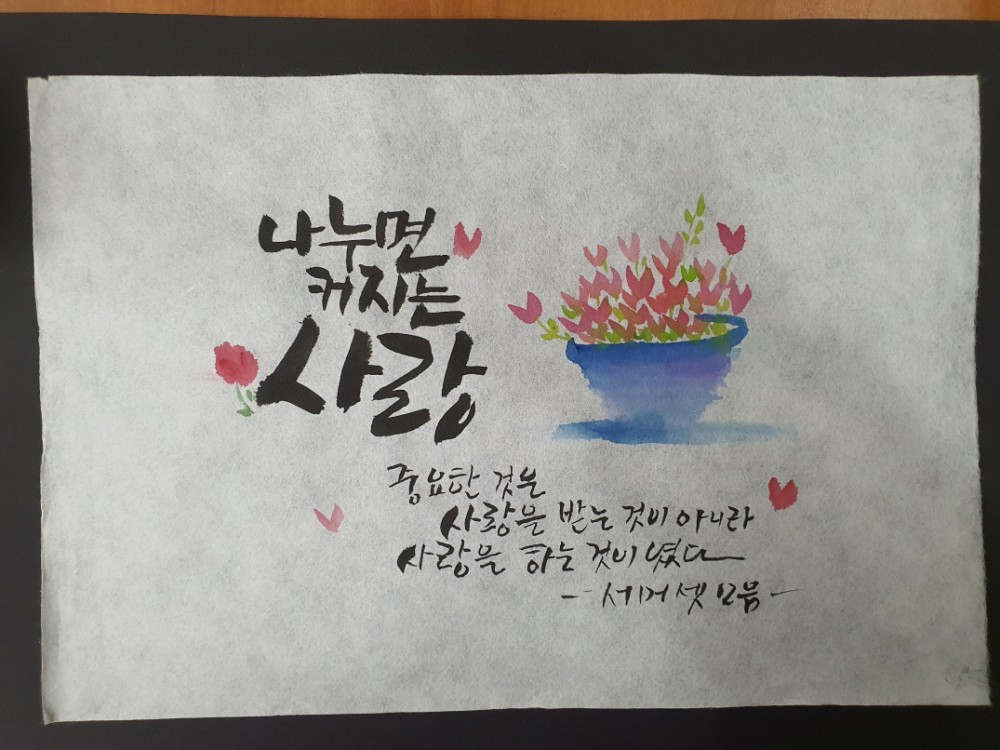 나누면
커지는
사랑
중요한 것은
사랑을 받는 것이 아니라
사랑을 하는 것이였다
- 서머셋 모음 -